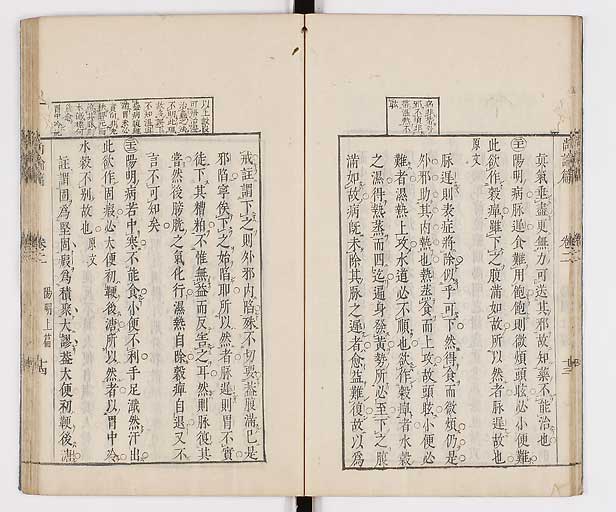 真氣垂盡更無力可送其邪故知藥不能治也
陽明病脉遲食難用飽飽則微煩頭眩必小便難
此欲作穀癉雖下之腹滿如故所以然者脉遲故也
原文
脉遲則表症將除似乎可下然得食而微煩仍是
外邪助其內熱也熱蒸食而上攻故頭眩小便必
難者濕熱上攻水道必不順也欲作穀癉者水穀
之濕得熱蒸而四迄遍身發黃勢所必至下之腹
滿如故病旣未除其脉之遲者愈益難復故以爲
尚論篇
卷二
十三
戒註謂下之則外邪內陷殊不切要蓋腹滿已是
邪陷寧俟下之始陷耶所以然者脉遲則胃不實
徒下其糟粕不惟無益而反害之耳然則脉復其
常然後膀胱之氣化行濕熱自除穀癉自退又不
言不可知矣
陽明病若中寒不能食小便不利手足濈然汗出
此欲作固瘕必大便初鞕後溏所以然者以胃中冷
水穀不別故也 原文
註謂固爲堅固瘕爲積聚大謬蓋大便初鞕後溏
尚論篇
卷二
陽明上篇
十四